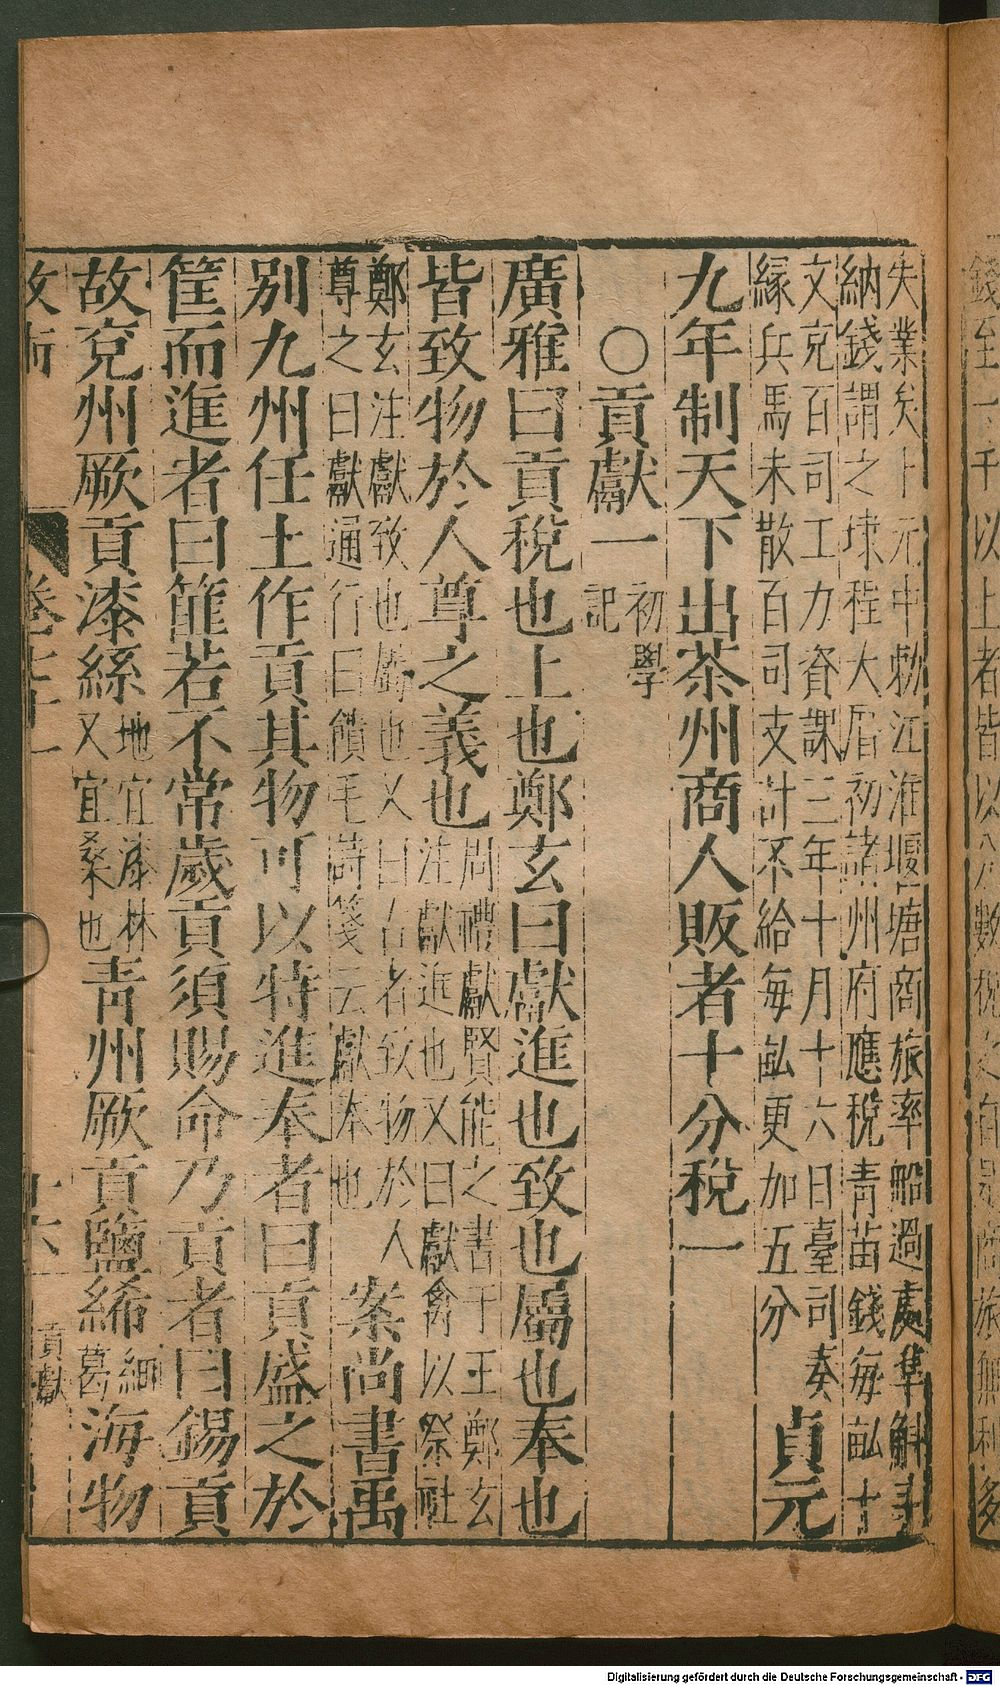 失業矣上元中勅江淮堰塘商旅率船過處隼斛斗
納錢謂之埭程大曆初諸州府應稅青苗錢每畝十
文克百司工力資課三年十月十六日臺司奏
緣兵馬未散百司支計不給每畝更加五分
貞元
九年制天下出茶州商人販者十分稅一
○貢獻一
初學
記
廣雅曰貢稅也上也鄭玄曰獻進也致也屬也奉也
皆致物於人尊之義也
周禮獻賢能之書于王鄭玄
注獻進也又曰獻禽以祭社
鄭玄注獻致也屬也又曰古者致物於人
尊之曰獻通行曰饋毛詩箋云獻奉也
案尚書禹
別九州任土作貢其物可以特進奉者曰貢盛之於
筐而進者曰篚若不常歲貢須賜命乃貢者曰錫貢
故兖州厥貢漆絲
地宜漆林
又宜桑也
青州厥貢鹽絺
細
葛
海物
卷七十一
貢獻